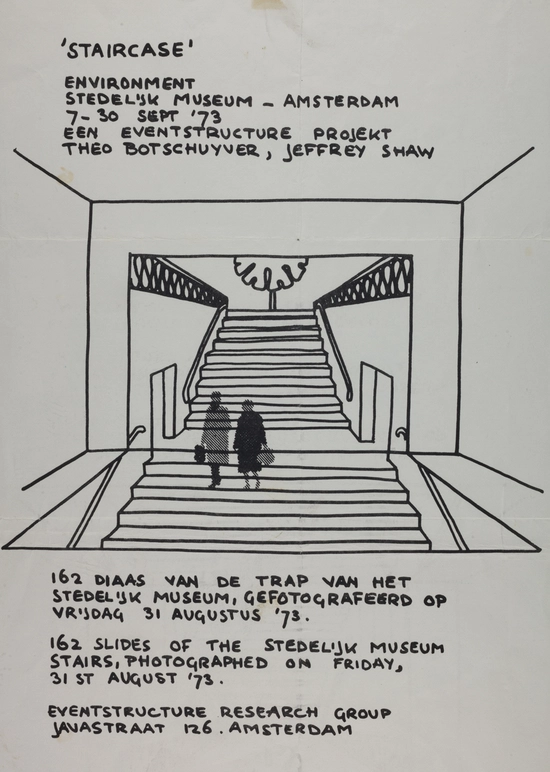 'STAIRCASE'
ENVIRONMENT
STEDELIJK MUSEUM – AMSTERDAM
7–30 SEPT '73
EEN EVENTSTRUCTURE PROJEKT
THEO BOTSCHUYVER, JEFFREY SHAW
162 DIAAS VAN DE TRAP VAN HET
STEDELIJK MUSEUM, GEFOTOGRAFEERD OP
VRIJDAG 31 AUGUSTUS '73.
162 SLIDES OF THE STEDELIJK MUSEUM
STAIRS, PHOTOGRAPHED ON FRIDAY,
31 ST AUGUST '73.
EVENTSTRUCTURE RESEARCH GROUP
JAVASTRAAT 126. AMSTERDAM